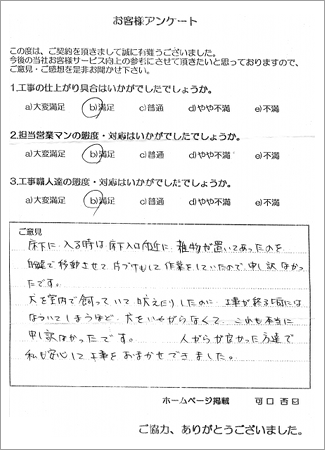 お客様アンケート
この度は、ご契約を頂きまして誠に有難うございました。
今後の当社お客様サービス向上の参考にさせて頂きたいと思っておりますので、
ご意見・ご感想を是非お聞かせ下さい。
1.工事の仕上がり具合はいかがでしたでしょうか。
a)大変満足 b)満足 c)普通 d)やや不満 e)不満
2.担当営業マンの態度・対応はいかがでしたでしょうか。
a)大変満足 b)満足 c)普通 d)やや不満 e)不満
3.工事職人達の態度・対応はいかがでしたでしょうか。
a)大変満足 b)満足 c)普通 d)やや不満 e)不満
ご意見
床下に入る時は床下入口付近に荷物が置いてあったのを
で移動させて片づけもして作業をしていたので申し訳なかっ
たです。
犬を室内で飼っていて吠えたりしたのに工事が終る頃には
なついてしまうほど、犬をいやがらなくて、これも本当に
申し訳なかったです。 人がらが良かった方達で
私も安心して工事をおまかせできました。
ホームページ掲載 可 否
ご協力、ありがとうございました。